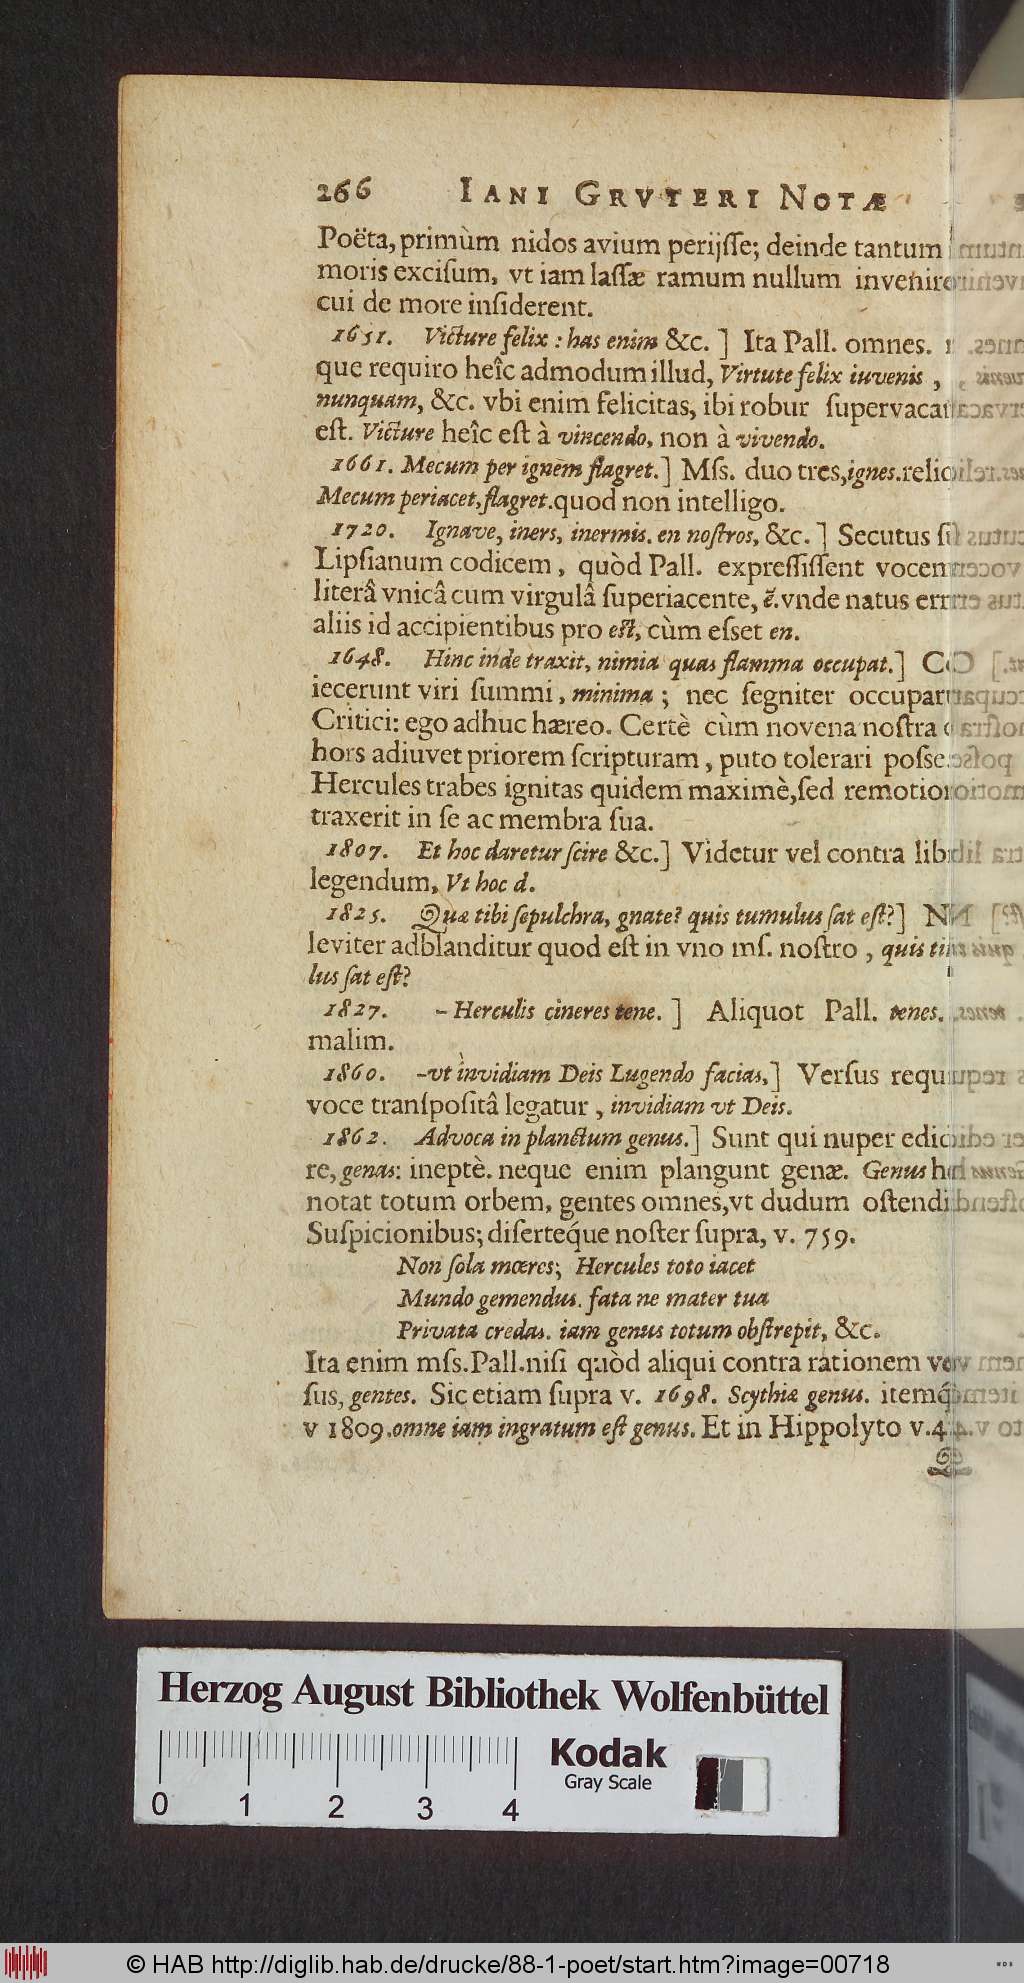 266 IANI GRVTERI NOTÆ
Poëta, primùm nidos avium perijſſe; deinde tantum
moris exciſum, vt iam laſſæ ramum nullum invenire
cui de more inſiderent.
1651. Victure felix : has enim &c. ] Ita Pall. omnes.
que requiro heîc admodum illud, Virtute felix iuvenis ,
nunquam, &c. vbi enim felicitas, ibi robur ſupervaca
eſt. Victure heîc eſt à vincendo, non à vivendo.
1661. Mecum per ignem flagret.] Mſs. duo tres, ignes. reli
Mecum periacet, flagret. quod non intelligo.
1720. Ignave, iners, inermis. en noſtros, &c. ] Secutus
Lipſianum codicem, quòd Pall. expreſſiſſent vocem
literâ vnicâ cum virgulâ ſuperiacente, ē. vnde natus err
aliis id accipientibus pro eſt, cùm eſset en.
1648. Hinc inde traxit, nimia quas flamma occupat.] C
iecerunt viri ſummi, minima ; nec ſegniter occupar
Critici: ego adhuc hæreo. Certè cùm novena noſtra
hors adiuvet priorem ſcripturam, puto tolerari poſse.
Hercules trabes ignitas quidem maximè, ſed remotior
traxerit in ſe ac membra ſua.
1807. Et hoc daretur ſcire &c.] Videtur vel contra lib
legendum, Vt hoc d.
1825. Quæ tibi ſepulchra, gnate? quis tumulus ſat eſt?] N
leviter adblanditur quod eſt in vno mſ. noſtro , quis
lus ſat eſt?
1827. – Herculis cineres tene. ] Aliquot Pall. tenes.
malim.
1860. –vt invidiam Deis Lugendo facias.] Verſus requ
voce tranſpoſitâ legatur , invidiam vt Deis.
1862. Advoca in planctum genus.] Sunt qui nuper edi
re, genas: ineptè. neque enim plangunt genæ. Genus
notat totum orbem, gentes omnes, vt dudum oſtendi
Suſpicionibus; diſerteq́ue noſter ſupra, v. 759.
Non ſola mœres; Hercules toto iacet
Mundo gemendus. fata ne mater tua
Privata credas. iam genus totum obſtrepit, &c.
Ita enim mſs. Pall. niſi quòd aliqui contra rationem
ſus, gentes. Sic etiam ſupra v. 1698. Scythiæ genus. itemq́
v 1809. omne iam ingratum eſt genus. Et in Hippolyto v.
Herzog August Bibliothek Wolfenbüttel
Kodak
Gray Scale
0 1 2 3 4
© HAB http://diglib.hab.de/drucke/88-1-poet/start.htm?image=00718